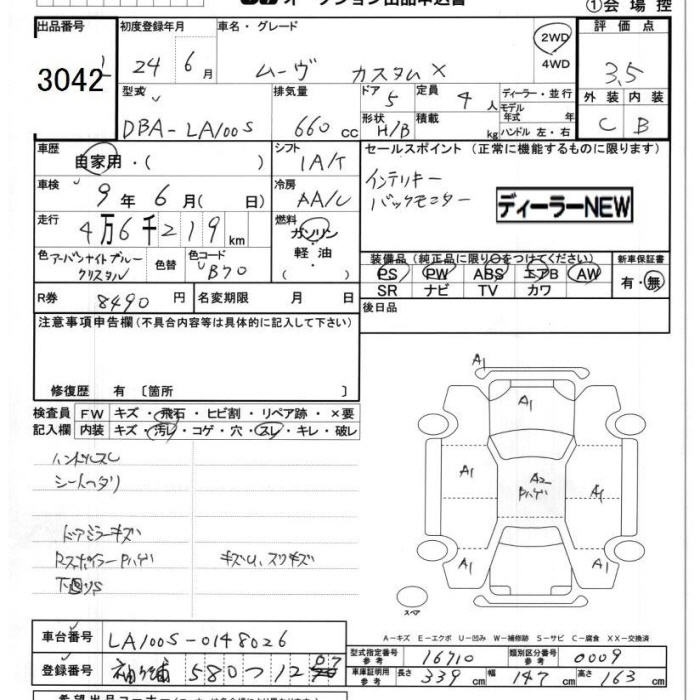 オークション出品申込書
①会場控
出品番号 初度登録年月 車名・グレード 評価点
3042 24年6月 ムーヴ カスタムX 2WD 4WD 3.5
型式 排気量 ドア 5 定員 4人 ディーラー・並行 外装 内装
DBA-LA100S 660cc 形状 H/B 積載 kg モデル年式 年 ハンドル 左・右 C B
車歴 自家用・( ) シフト IA/T セールスポイント (正常に機能するものに限ります)
車検 9年6月( 日) 冷房 AA/C インテリキー
バックモニター
ディーラーNEW
走行 4万6千219km 燃料 ガソリン・軽油・( )
色 アーバンナイトブルークリスタル 色替 色コード B70
装備品 (純正品に限り○をつけてください) 新車保証書
PS PW ABS エアB AW 有・無
SR ナビ TV カワ
R券 8490円 名変期限 月 日 後日品
注意事項申告欄 (不具合内容等は具体的に記入して下さい)
修復歴 有 〔箇所 〕
検査員 FW キズ・飛石・ヒビ割・リペア跡・×要
記入欄 内装 キズ・汚レ・コゲ・穴・スレ・キレ・破レ
ハンドルスレ
シートヘタリ
ドアミラーキズ
Rスポイラーハゲ キズU、スリキズ
下回りS
A1
A1
A1 A2 ハゲ A1
A1 A1
スペア
A-キズ E-エクボ U-凹み W-補修跡 S-サビ C-腐食 XX-交換済
車台番号 LA100S-0148026
型式指定番号 参考 16710 類別区分番号 参考 0009
登録番号 580つ12
車庫証明用 参考 長さ 339cm 幅 147cm 高さ 163cm
希望出品コーナー